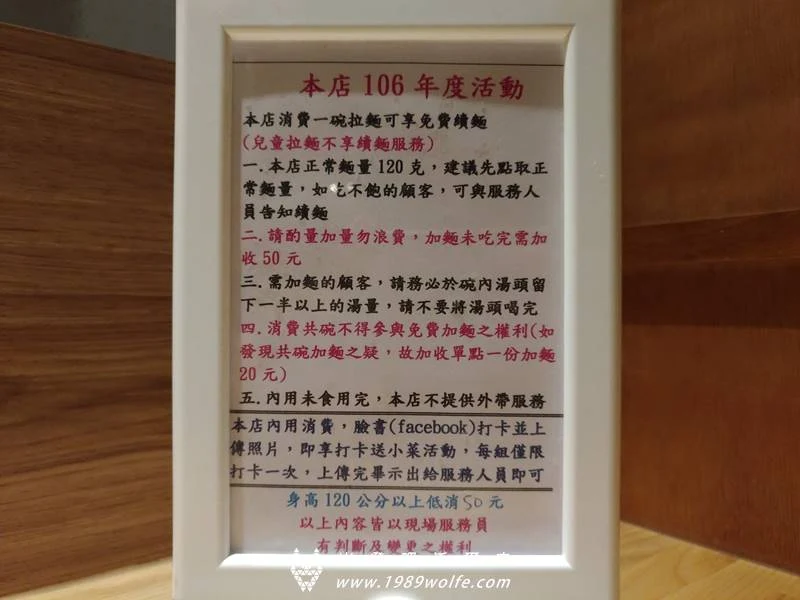 本店 106 年度活動
本店消費一碗拉麵可享免費續麵
(兒童拉麵不享續麵服務)
一.本店正常麵量 120 克，建議先點取正
常麵量，如吃不飽的顧客，可與服務人
員告知續麵
二.請酌量加量勿浪費，加麵未吃完需加
收 50 元
三.需加麵的顧客，請務必於碗內湯頭留
下一半以上的湯量，請不要將湯頭喝完
四.消費共碗不得參與免費加麵之權利(如
發現共碗加麵之疑，故加收單點一份加麵
20 元)
五.內用未食用完，本店不提供外帶服務
本店內用消費，臉書(facebook)打卡並上
傳照片，即享打卡送小菜活動，每組僅限
打卡一次，上傳完畢示出給服務人員即可
身高 120 公分以上低消 50 元
以上內容皆以現場服務員
有判斷及變更之權利
www.1989wolfe.com